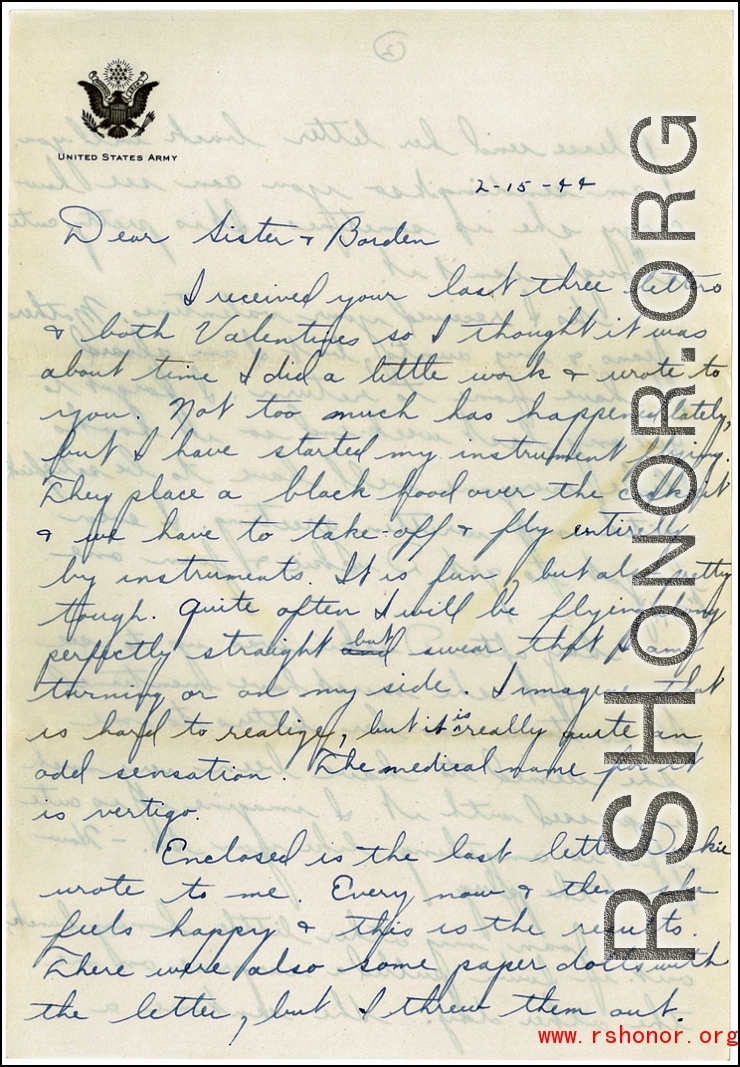 UNITED STATES ARMY
2-15-44
Dear Sister & Borden
I received your last three letters
& both Valentines so I thought it was
about time I did a little work & wrote to
you. Not too much has happened lately,
but I have started my instrument flying.
They place a black hood over the cockpit
& we have to take-off & fly entirely
by instruments. It is fun, but also pretty
tough. Quite often I will be flying along
perfectly straight but swear that I am
turning or on my side. I imagine that
is hard to realize, but it is really quite an
odd sensation. The medical name for it
is vertigo.
Enclosed is the last letter
wrote to me. Every now & then she
feels happy & this is the results.
There were also some paper dolls with
the letter, but I threw them out.
RSHONOR.ORG
www.rshonor.org